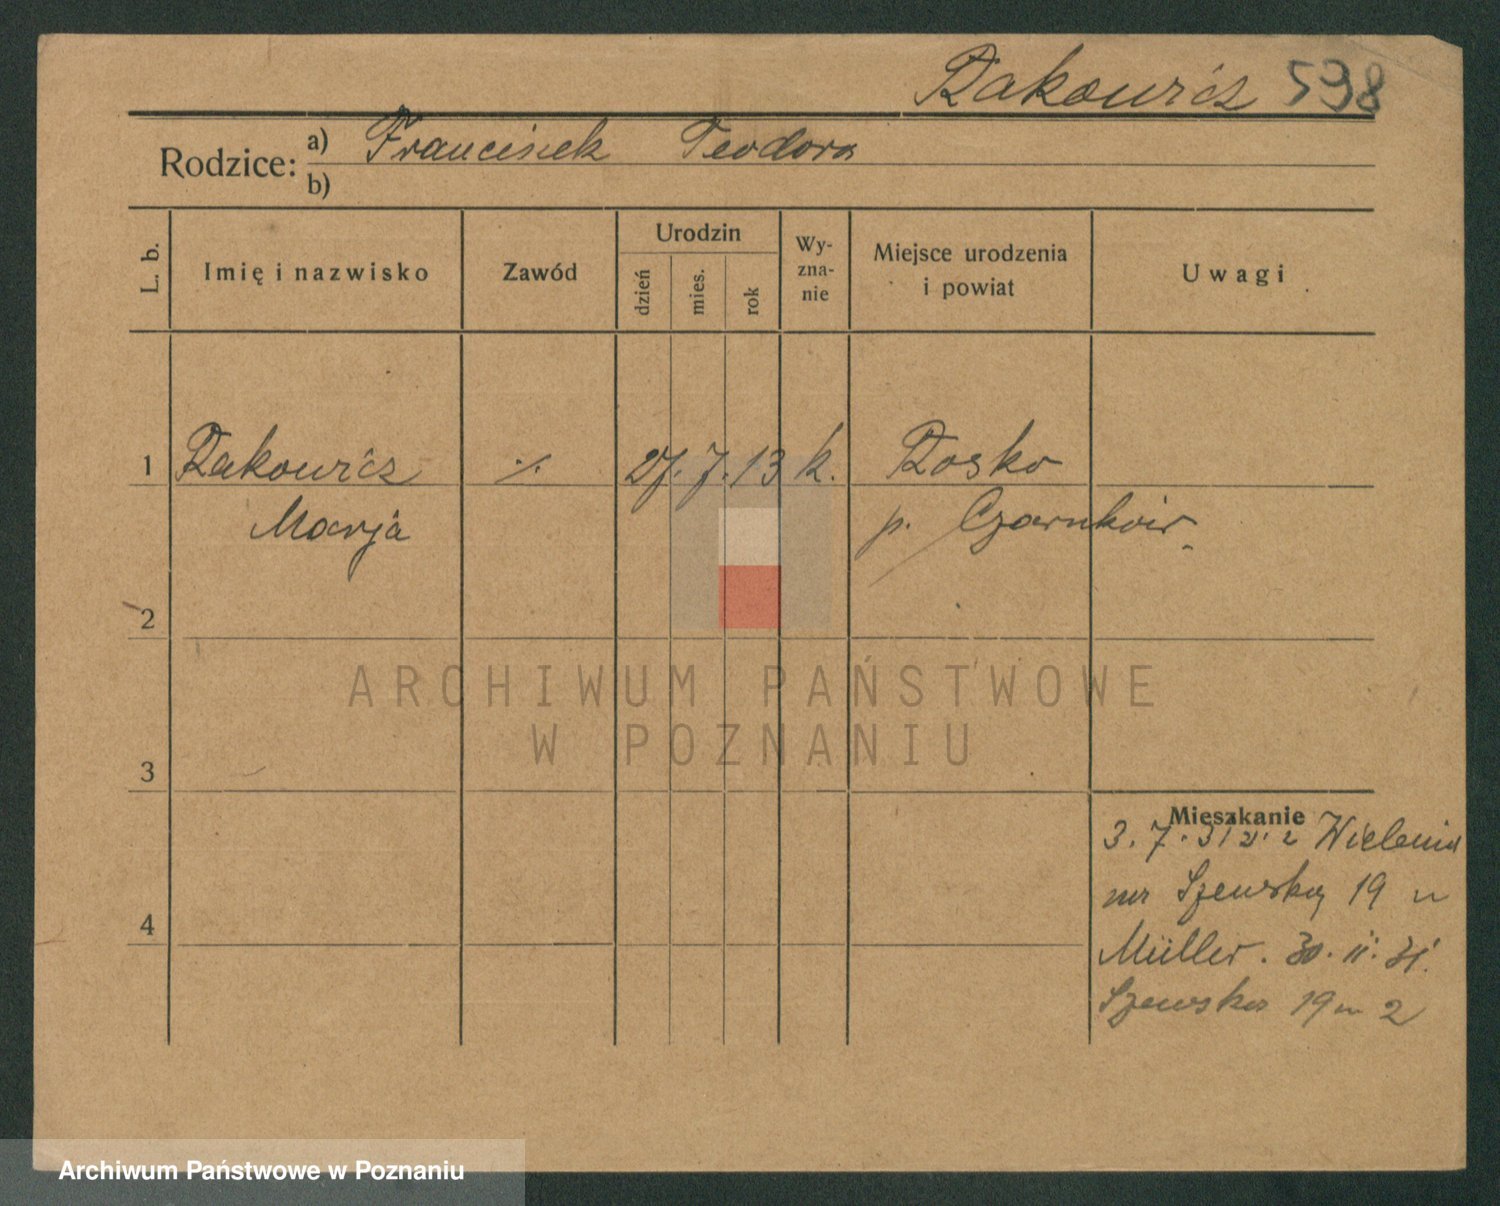 Rakowicz 598
Rodzice: a) Franciszek Teodora
b)
L. b.
Imię i nazwisko
Zawód
Urodzin
dzień
mies.
rok
Wy-
zna-
nie
Miejsce urodzenia
i powiat
Uwagi
1 Rakowicz ·/· 27. 7. 13 k. Rosko
Marja p. Czarnków
2
3
4
Mieszkanie
3. 7. 31 z Wielenia
na Szewską 19
Müller. 30. 11. 31.
Szewska 19 m 2
ARCHIWUM PAŃSTWOWE
W POZNANIU
Archiwum Państwowe w Poznaniu